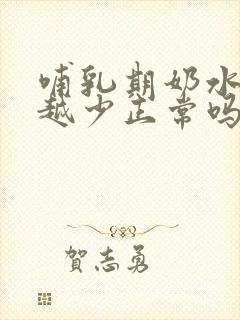 哺乳期奶水
越少正常吗
賀志勇